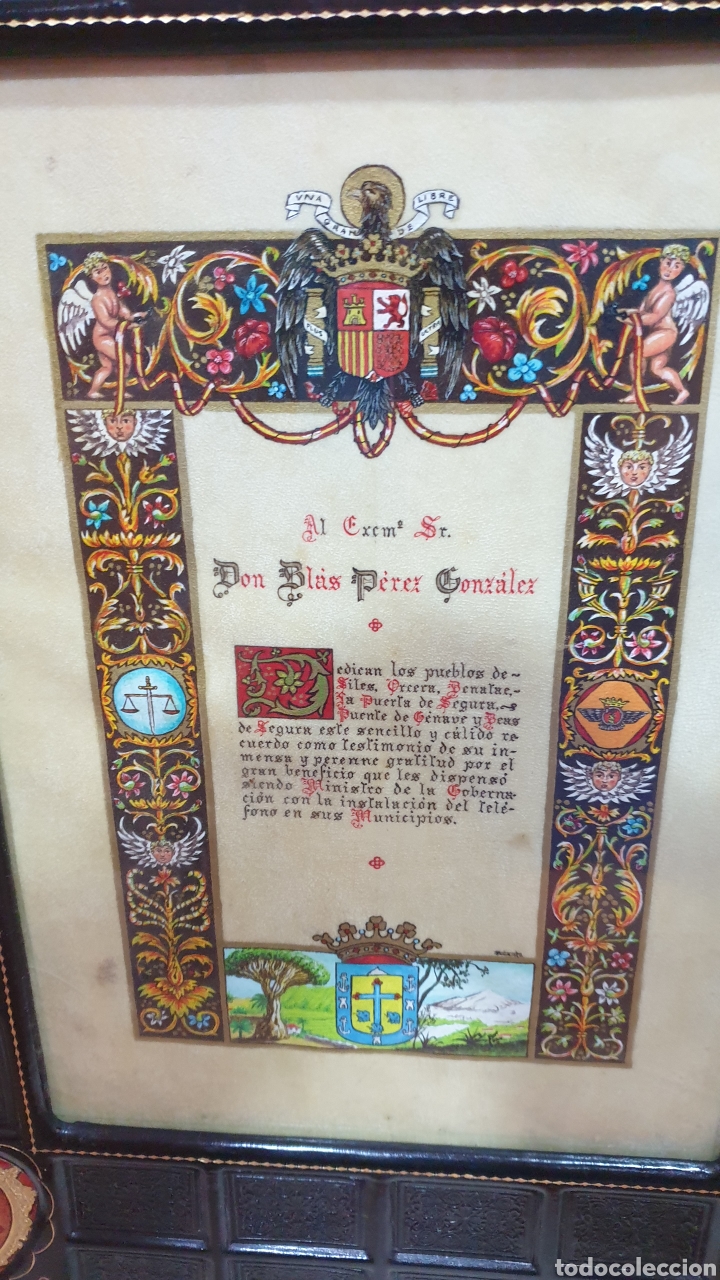 UNA
GRANDE
LIBRE
PLUS
Al Excmº Sr.
Don Blás Pérez González
Dedican los pueblos de~
Siles, Orcera, Benatae,~
La Puerta de Segura,~
Puente de Génave y Beas
de Segura este sencillo y cálido re-
cuerdo como testimonio de su in-
mensa y perenne gratitud por el
gran beneficio que les dispensó
siendo Ministro de la Goberna-
ción con la instalación del telé-
fono en sus Municipios.
todocoleccion